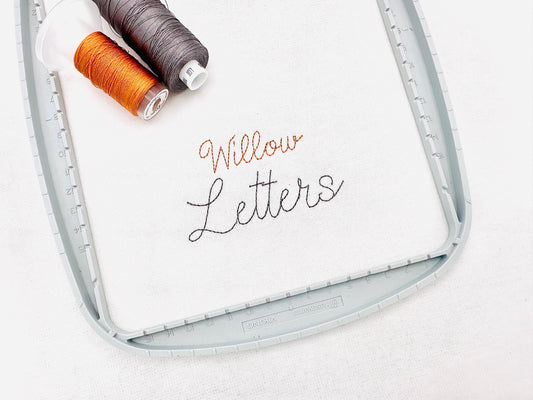 Willow
Letters